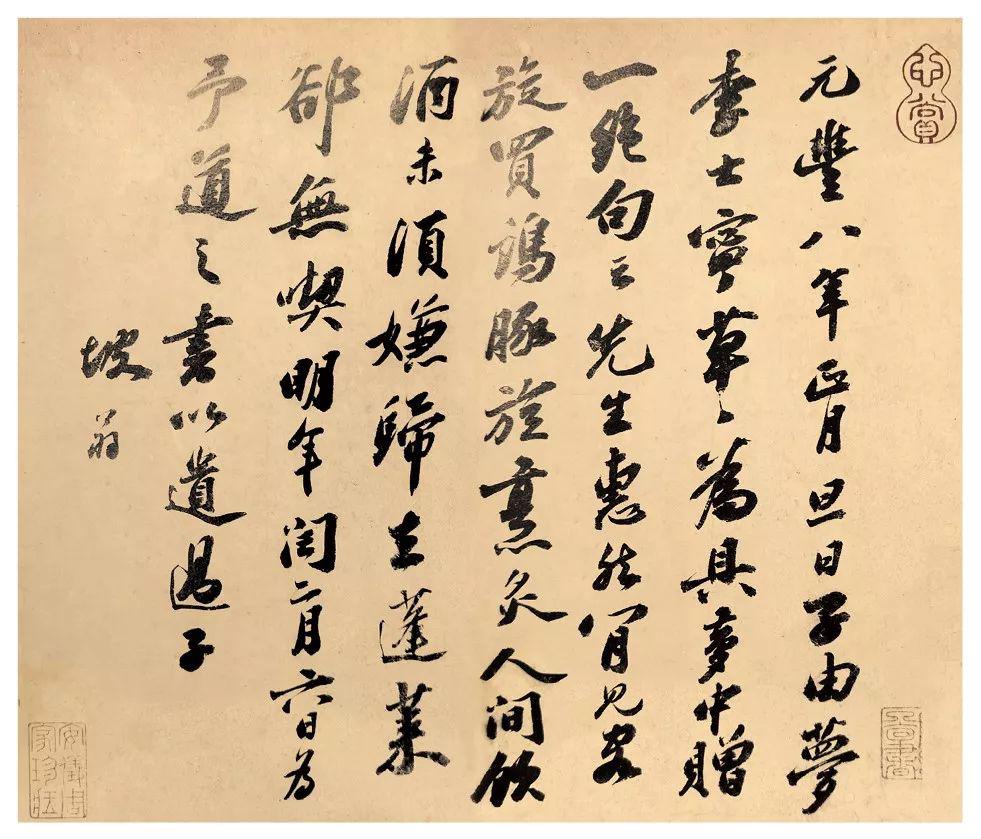 元豐八年正月旦日子由夢
李士寧草草為具夢中贈
一絕句云先生惠然肯見客
旋買雞豚旋烹炙人間飲
酒未須嫌歸去蓬萊
卻無喫明年閏二月六日為
予道之書以遺過子
坡翁